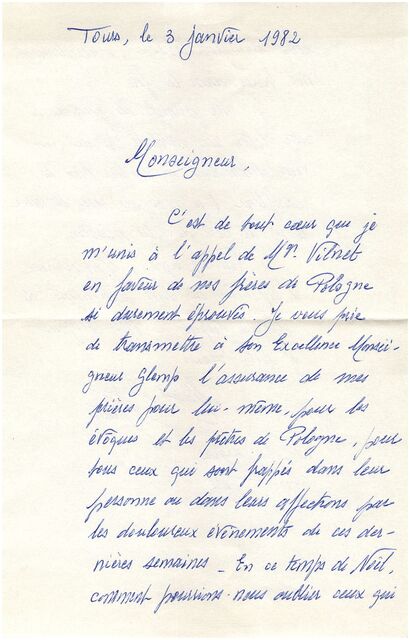 Tours, le 3 janvier 1982
Monseigneur,
C'est de tout cœur que je
m'unis à l'appel de Mgr. Vilnet
en faveur de nos frères de Pologne
si durement éprouvés. Je vous prie
de transmettre à son Excellence Monsei-
gneur Glemp l'assurance de mes
prières pour lui-même, pour les
évêques et les prêtres de Pologne, pour
tous ceux qui sont frappés dans leur
personne ou dans leurs affections par
les douloureux évènements de ces der-
nières semaines - En ce temps de Noël,
comment pourrions-nous oublier ceux qui